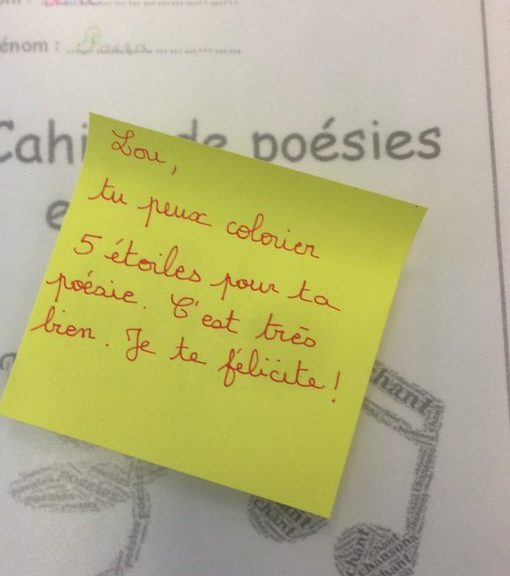 énom :
Cahi de poésies
e
Lou,
tu peux colorier
5 étoiles pour ta
poésie. C'est très
bien. Je te félicite !
chant
chant
chanson